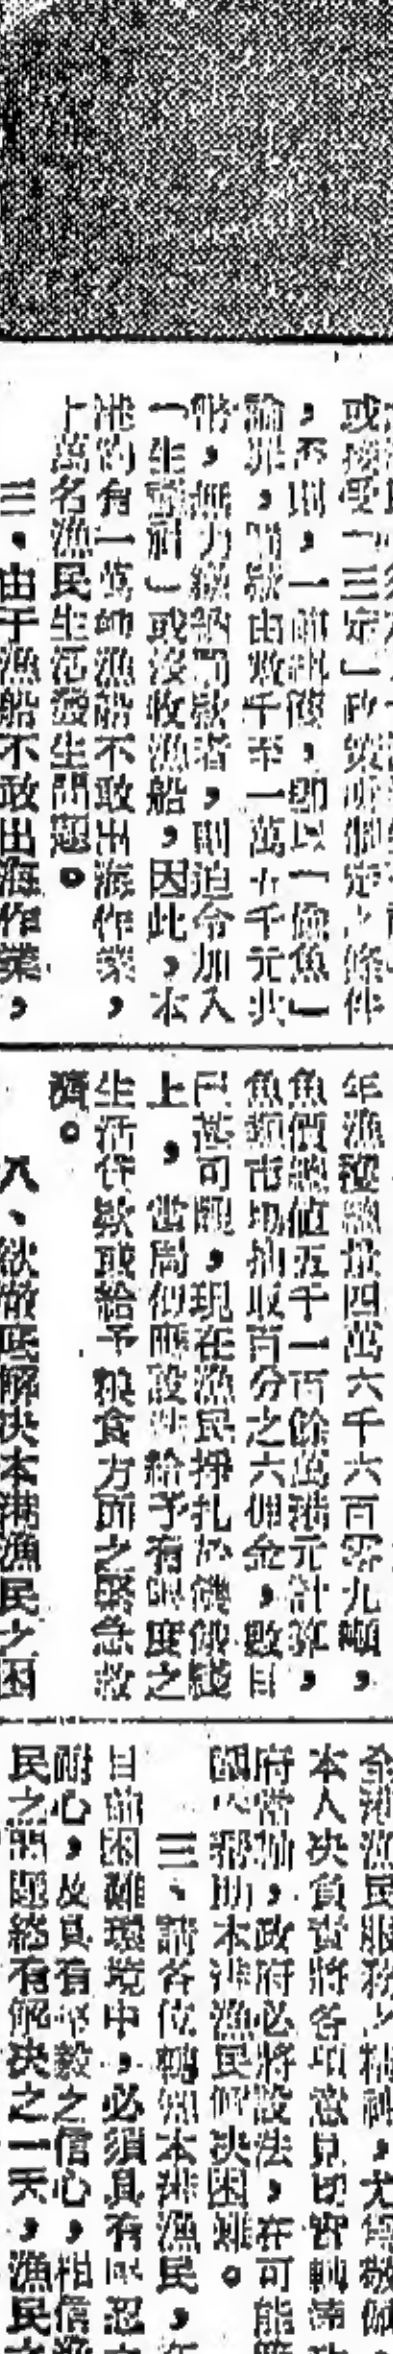 或接受「三定」政策所個定之條件
，不則，一經捕獲，即以「偷魚」
論罪，罰款由數千至一萬五千元共
幣，無力繳納罰款者，則迫令加入
「生產組」或沒收漁船，因此，本
港約有一萬艘漁船不敢出海作業，
十萬名漁民生活發生問題。
三，由于漁船不敢出海作業，
年漁穫總量四萬六千六百零九噸，
魚價總值五千一百餘萬港元計算，
魚類市場抽取百分之六佣金，數目
已甚可觀，現在漁民掙扎於饑餓綫
上，當局似應設法給予有限度之
生活貸款或給予粮食方面之緊急救
濟。
八、欲做底解決本港漁民之困
全港漁民服務之精神，尤為敬佩
本人決負責將各項意見切實轉達政
府當局，政府必將設法，在可能範
圍內幫助本港漁民解決困難。
三、請各位轉知本港漁民，在
目前困難環境中，必須具有堅忍之
耐心，及具有宗教之信心，相信漁
民之問題終有解決之一天，漁民之